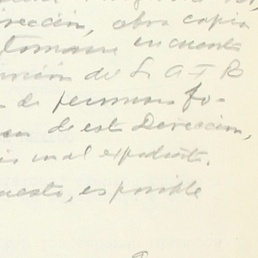 rección, obra copia
tomarse en cuenta
unión de S. A T R
de personas fo-
de esta Dirección,
en el expediente.
uesto, es posible